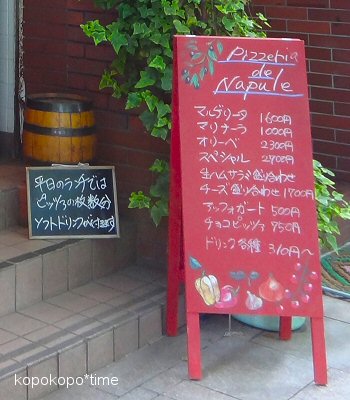 Pizzeria
de
Napule
マルゲリータ 1600円
マリナーラ 1000円
オリーベ 2300円
スペシャル 2400円
生ハムサラミ盛り合わせ
チーズ盛り合わせ 1700円
アッフォガート 500円
チョコピッツァ 950円
ドリンク各種 310円～
平日のランチでは
ピッツァの枚数分
ソフトドリンクが付きます
kopokopo*time